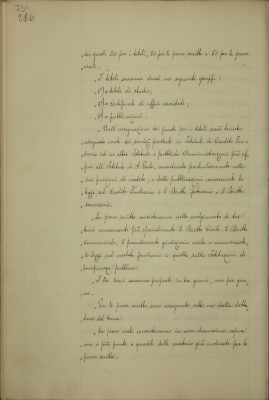 286
dei quali 50 per i titoli, 50 per le prove scritte e 50 per le prove
orali.
I titoli saranno divisi nei seguenti gruppi:
1º) titoli di studio;
2º) certificati di uffici
3º) pubblicazioni.
Nell'assegnazione dei punti per i titoli sarà tenuto
adeguato conto dei servizi prestati in Istituti di Credito Fon-
diario od in altri Istituti o pubbliche Amministrazioni più af-
fini all'Istituto di S. Paolo, considerate particolarmente nelle
sue funzioni di credito, e delle pubblicazioni concernenti le
leggi sul Credito Fondiario e il Diritto
Le prove scritte consisteranno nello svolgimento di tre
temi concernenti più specialmente il Diritto Civile, il Diritto
Commerciale, il procedimento giudiziario civile e commerciale,
le leggi sul credito fondiario e quelle sulle Istituzioni di
beneficenza pubblica.
I tre temi saranno proposti in tre giorni, uno per gior-
no.
Per le prove scritte sono assegnate otto ore dalla detta-
tura del tema.
Le prove orali consisteranno in una discussione sopra
uno o più punti o quesiti delle materie più indicate per le
prove scritte.